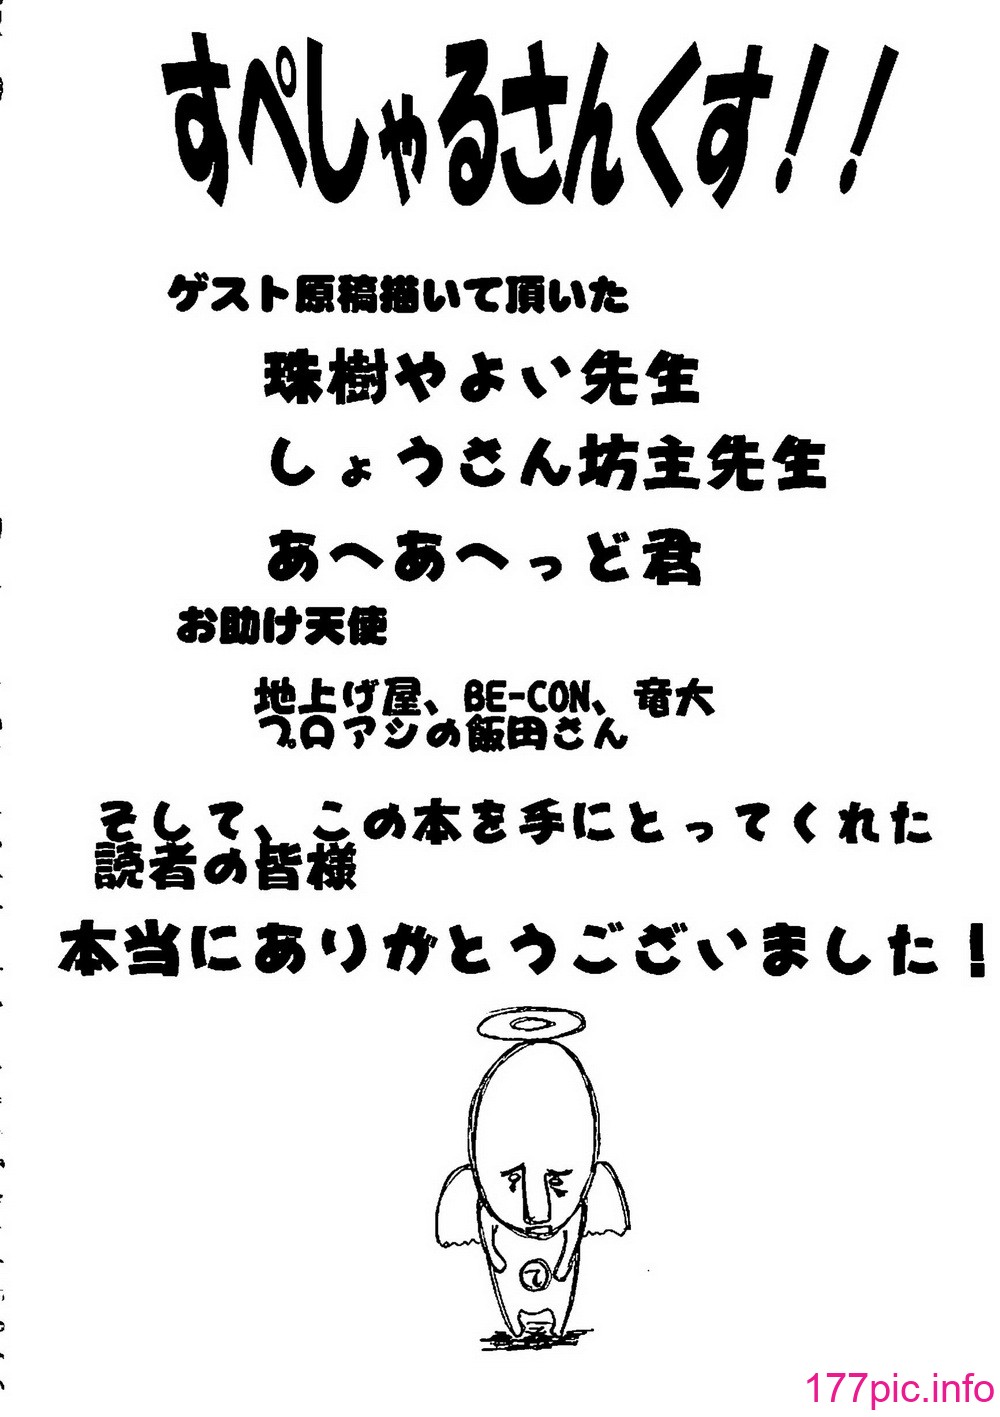 すぺしゃるさんくす！！
ゲスト原稿描いて頂いた
珠樹やよい先生
しょうさん坊主先生
あへあへっど君
お助け天使
地上げ屋、BE-CON、竜大
プロアシの飯田さん
そして、この本を手にとってくれた
読者の皆様
本当にありがとうございました！
て
177pic.info